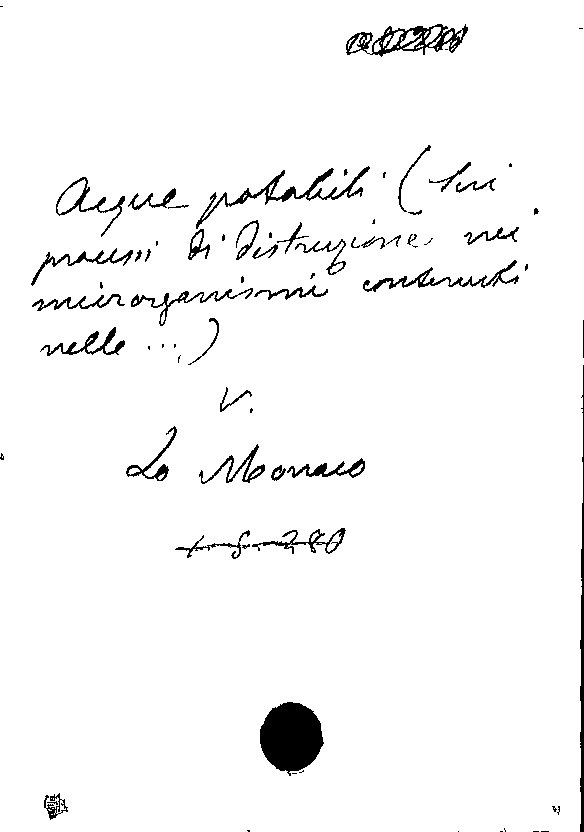 Acque potabili (Sui
processi di distruzione nei
microrganismi contenuti
nelle ...)
V.
Lo Monaco
1. S. 280